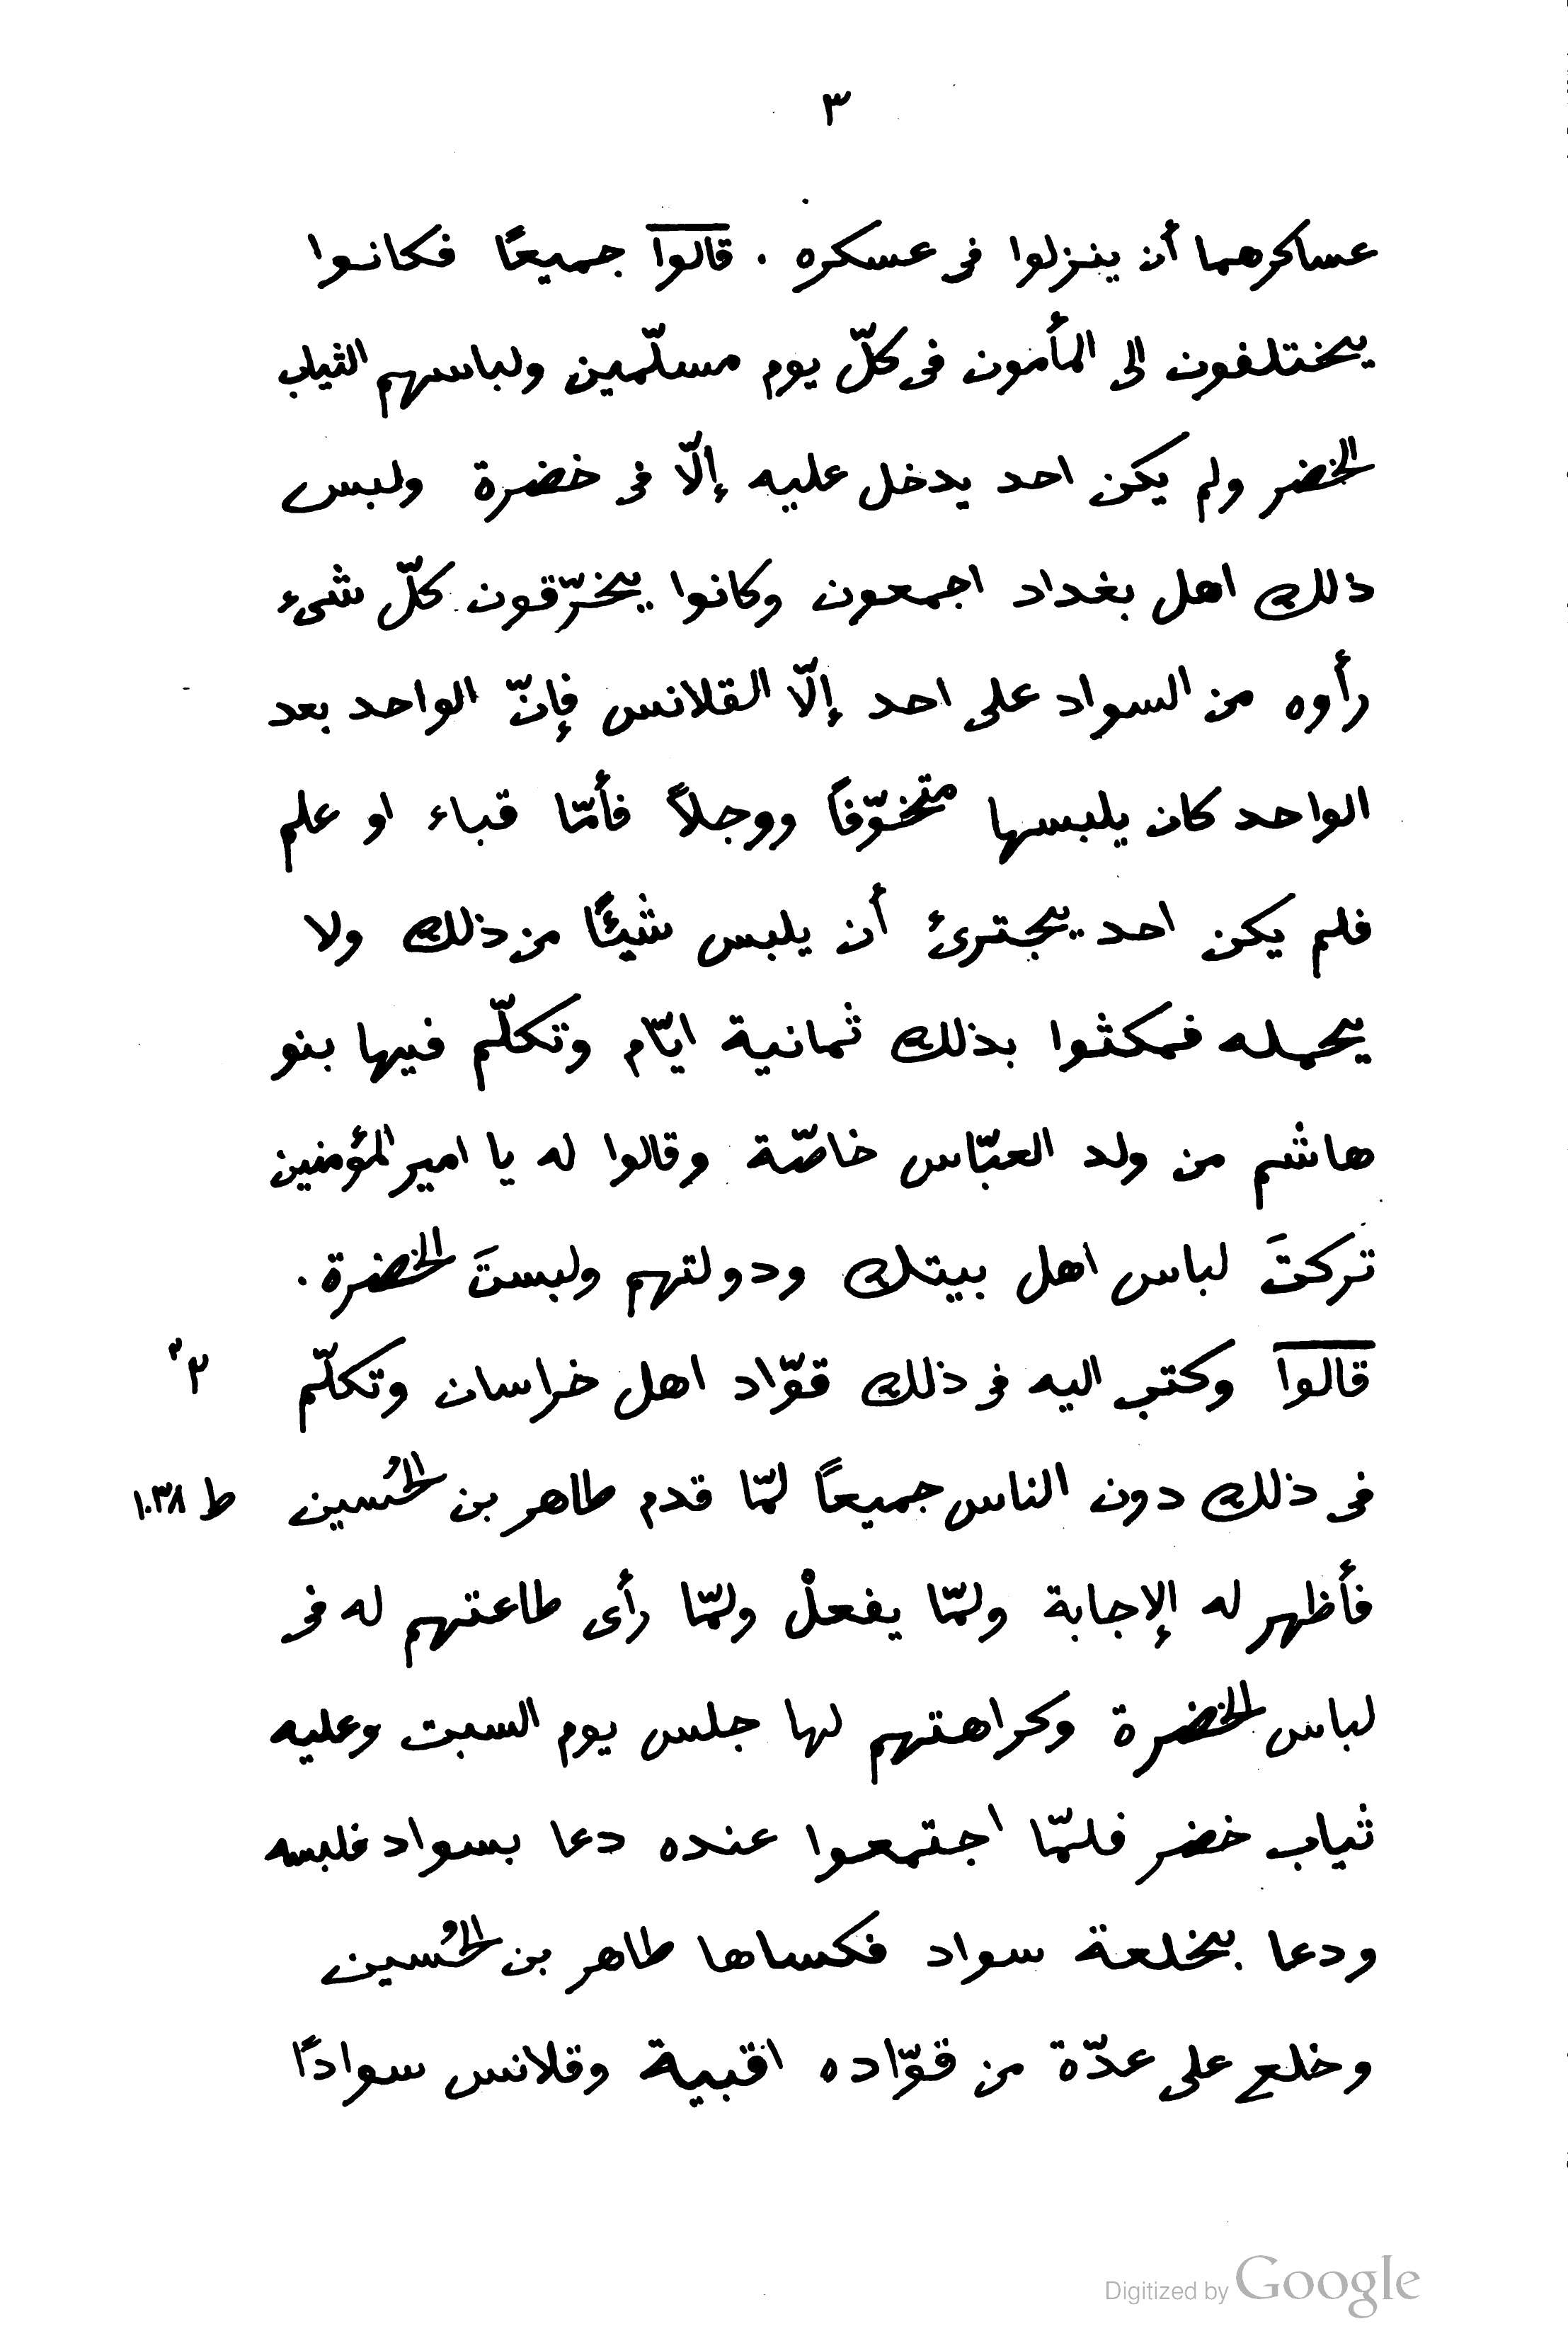 ٣
عساكرهما أن ينزلوا فى عسكره . قالوا جميعًا فكانوا
يختلفون الى المأمون فى كلّ يوم مسلّمين ولباسهم الثياب
الخضر ولم يكن احد يدخل عليه إلّا فى خضرة ولبس
ذلك اهل بغداد اجمعون وكانوا يخرّقون كلّ شىء
رأوه من السواد على احد إلّا القلانس فإنّ الواحد بعد
الواحد كان يلبسها متخوّفًا ووجلاً فأمّا قباء او علم
فلم يكن احد يجترئ أن يلبس شيئًا من ذلك ولا
يحمله فمكثوا بذلك ثمانية ايّام وتكلّم فيها بنو
هاشم من ولد العبّاس خاصّة وقالوا له يا امير المؤمنين
تركتَ لباس اهل بيتك ودولتهم ولبستَ الخضرة .
قالوا وكتب اليه فى ذلك قوّاد اهل خراسان وتكلّم
فى ذلك دون الناس جميعًا لمّا قدم طاهر بن الحُسين ط ١٠٣٨
فأظهر له الإجابة ولمّا يفعلْ ولمّا رأى طاعتهم له فى
لباس الخضرة وكراهتهم لها جلس يوم السبت وعليه
ثياب خضر فلمّا اجتمعوا عنده دعا بسواد فلبسه
ودعا بخلعة سواد فكساها طاهر بن الحُسين
وخلع على عدّة من قوّاده اقبية وقلانس سوادًا
Digitized by Google